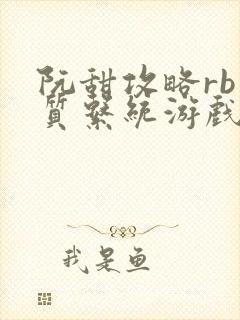 阮甜攻略rb
质系统游戏
我是鱼